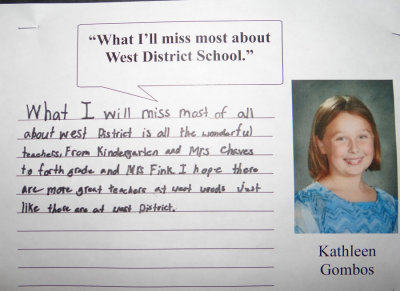 “What I’ll miss most about
West District School.”
What I will miss most of all
about west District is all the wonderful
teachers. From Kindergarten and Mrs Chaves
to forth grade and Mrs Fink. I hope there
are more great teachers at west woods Just
like there are at west District.
Kathleen
Gombos